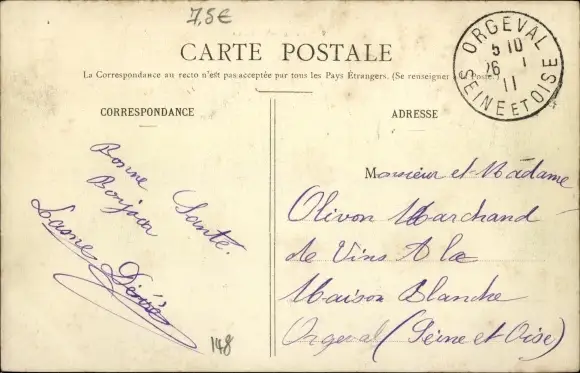 7,5€
CARTE POSTALE
La Correspondance au recto n'est pas acceptée par tous les Pays Étrangers. (Se renseigner à la Poste)
CORRESPONDANCE
ADRESSE
ORGEVAL
5 10
26 - 1
11
SEINE ET OISE
Bonne Santé.
Bonjour
Lasne Désiré
148
Monsieur et Madame
Olivon Marchand
de Vins A la
Maison Blanche
Orgeval (Seine et Oise)